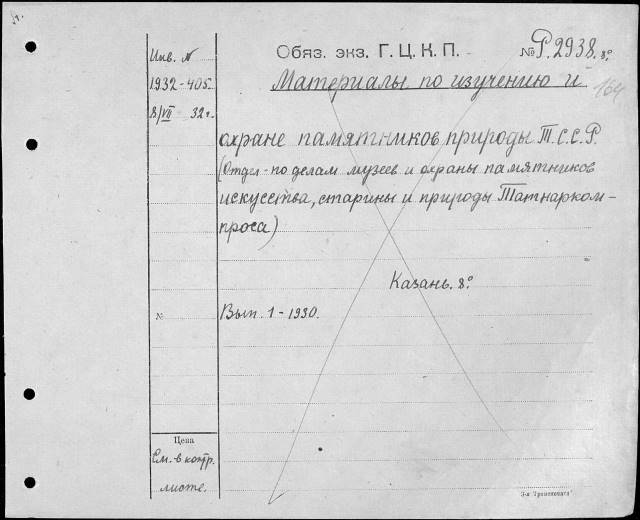 Инв. №
1932-405.
8/VII - 32 г.
Обяз. экз. Г. Ц. К. П.
№ Р. 2938. 8°
164
Материалы по изучению и
охране памятников природы Т.С.С.Р.
(Отдел - по делам музеев и охраны памятников
искусства, старины и природы Татнарком-
проса)
Казань. 8°
№
Вып. 1 - 1930.
Цена
См. в контр.
листе.